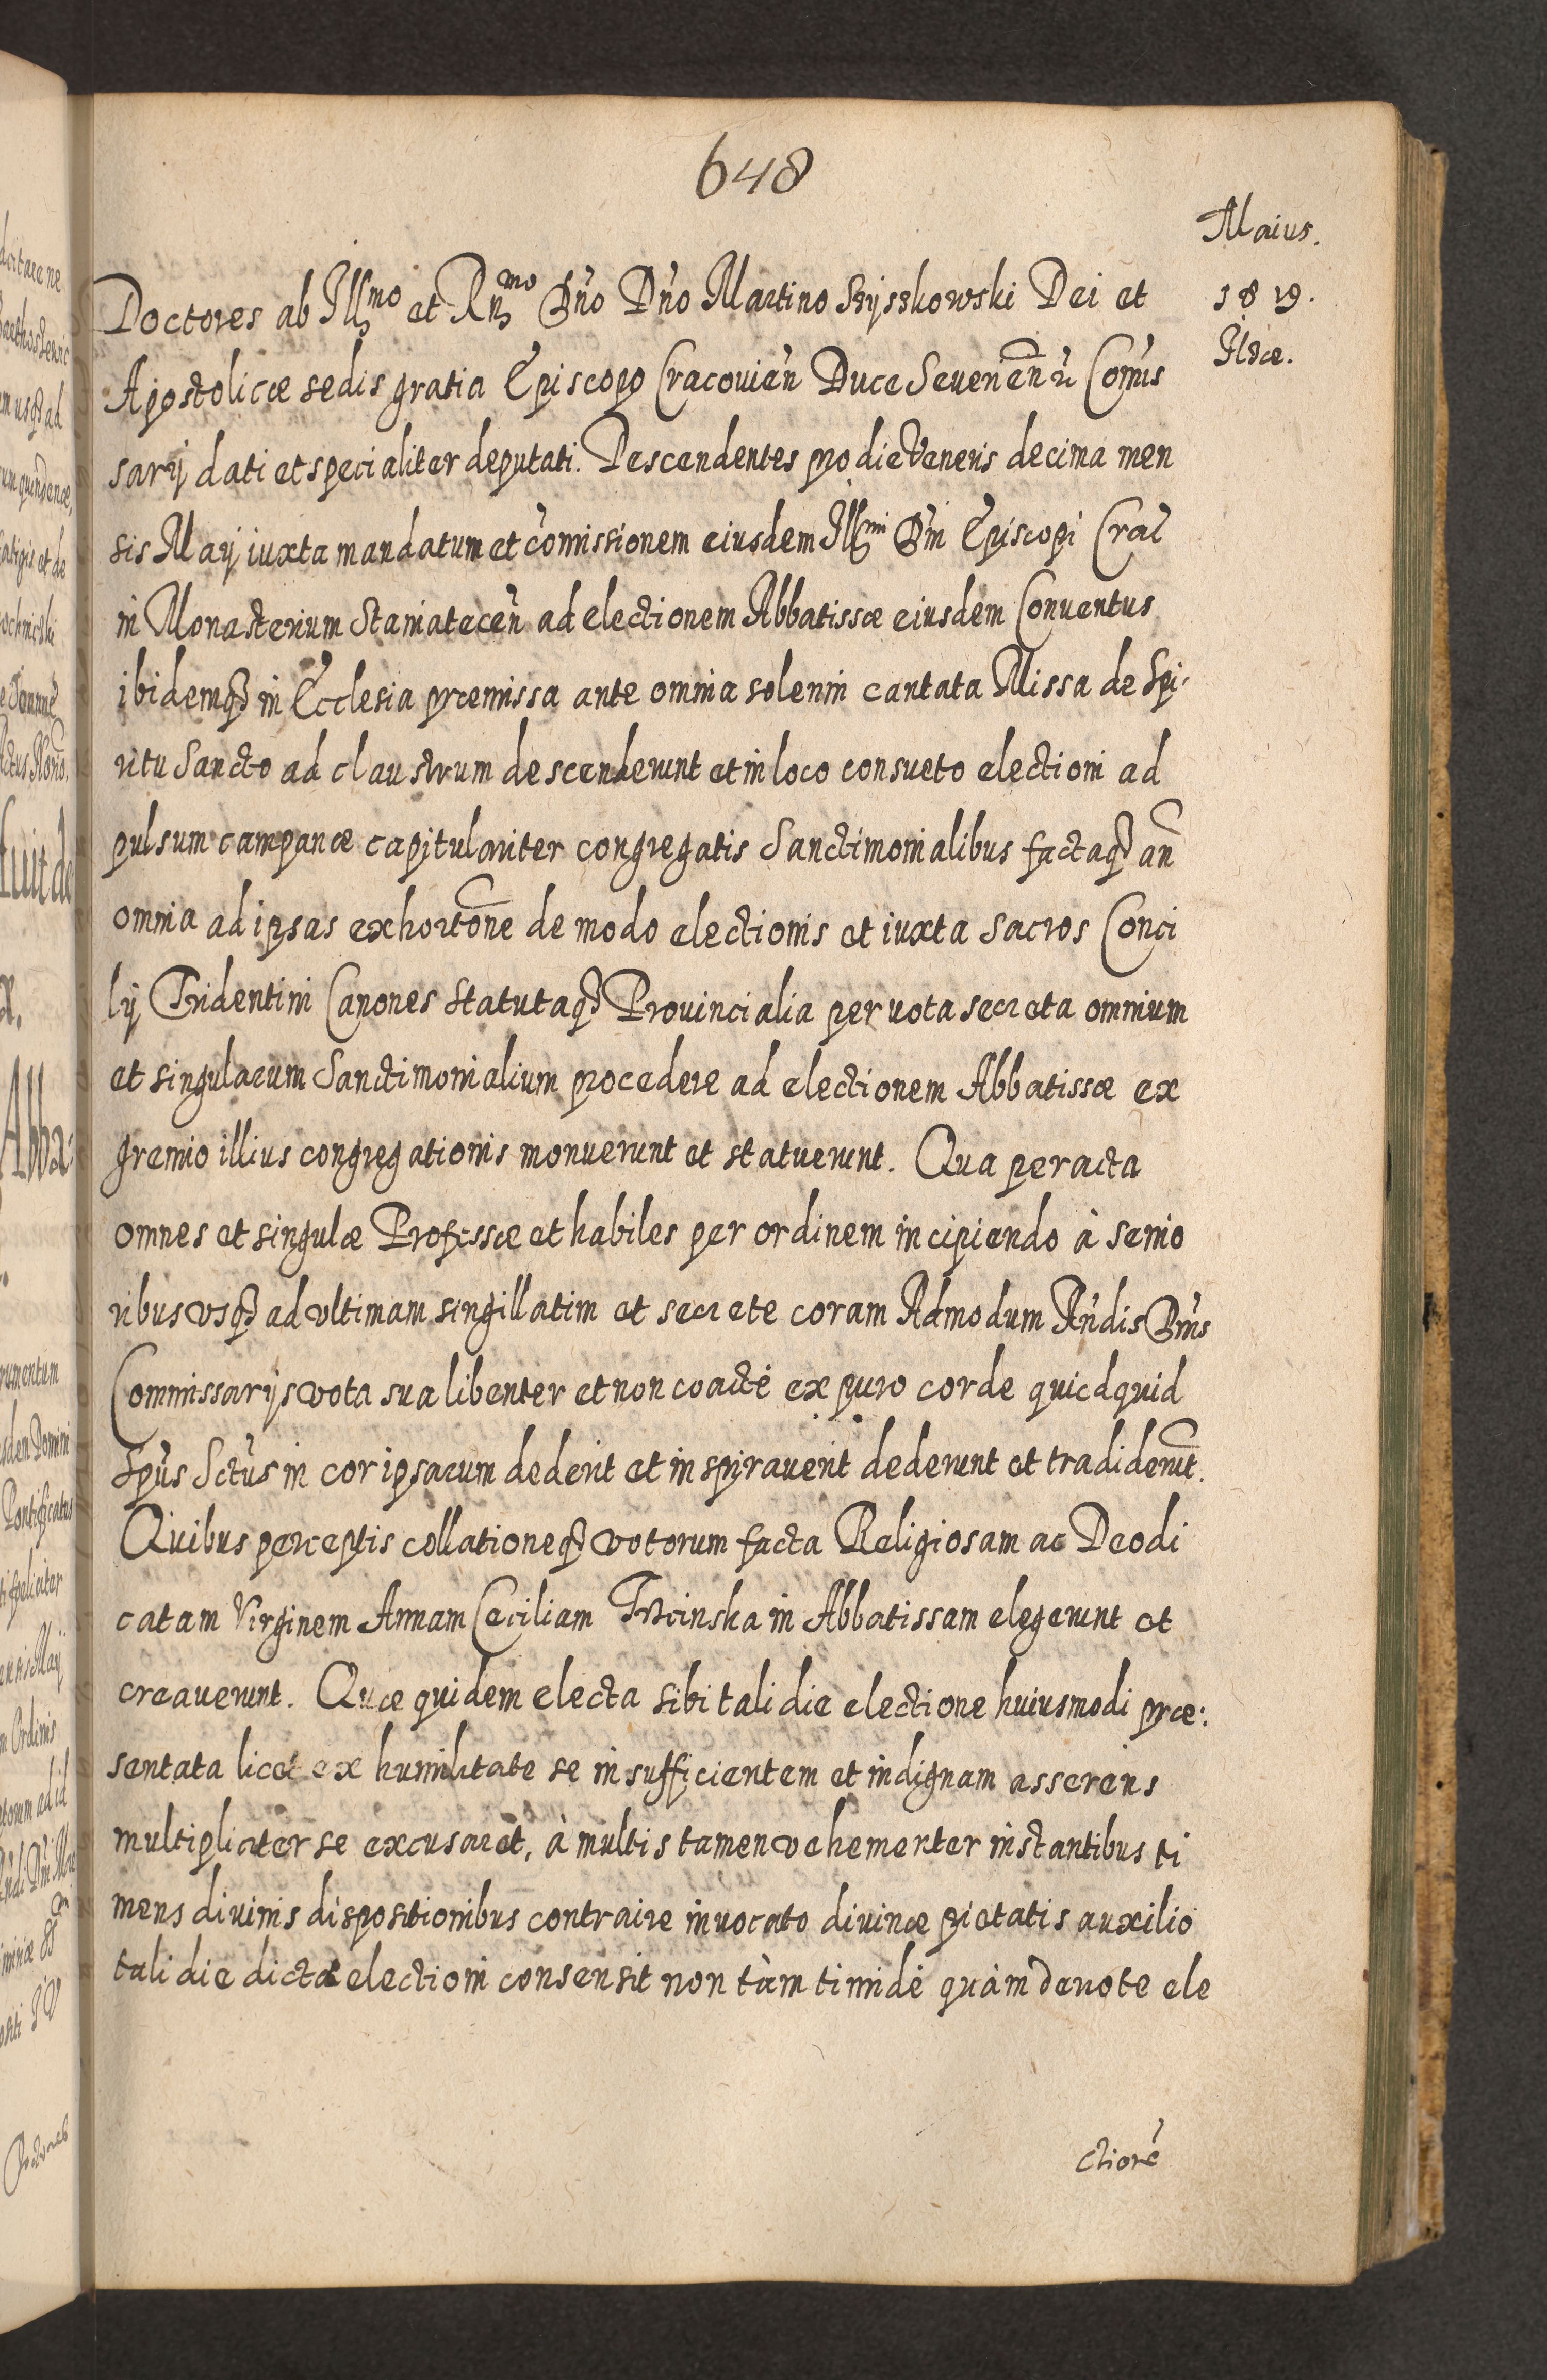 648
Maius.
1819.
Ilzæ.
Doctores ab Illmo et Rmmo Dño Dño Martino Szyszkowski Dei et
Apostolicæ sedis gratia Episcopo Cracovień Duce Severień Comis
sarij dati et specialiter deputati. Descendentes pro die Veneris decima men
sis Maij iuxta mandatum et comissionem eiusdem Illmi Dni Episcopi Crac
in Monasterium Staniateceń ad electionem Abbatissæ eiusdem Conventus
ibidemq in Ecclesia præmissa ante omnia solenni cantata Missa de Spi-
ritu Sancto ad claustrum descenderunt et in loco consueto electioni ad
pulsum campanæ capitulariter congregatis Sanctimonialibus factaq an
omnia ad ipsas exhortone de modo electionis et iuxta sacros Conci
lij Tridentini Canones Statutaq Provincialia per vota secreta omnium
et singularum Sanctimonialium procedere ad electionem Abbatissæ ex
gremio illius congregationis monuerunt et statuerunt. Qua peracta
omnes et singulæ Professæ et habiles per ordinem incipiendo à senio
ribus vsq ad vltimam singillatim et secrete coram Admodum Rndis Dnis
Commissarijs vota sua libenter et non coacte ex puro corde quicdquid
Spus Sctus in cor ipsarum dederit et inspiraverit dederunt et tradiderut.
Quibus perceptis collationeq votorum facta Religiosam ac Deodi
catam Virginem Annam Ceciliam Trzcinska in Abbatissam elegerunt et
creauerunt. Quæ quidem electa sibi tali die electione huiusmodi præ:
sentata licet ex humilitate se insufficientem et indignam asserens
multipliciter se excusaret, à multis tamen vehementer instantibus ti
mens divinis dispositionibus contraire invocato divinæ pietatis auxilio
tali die dictæ electioni consensit non tàm timidè quàm devote ele
ctioné